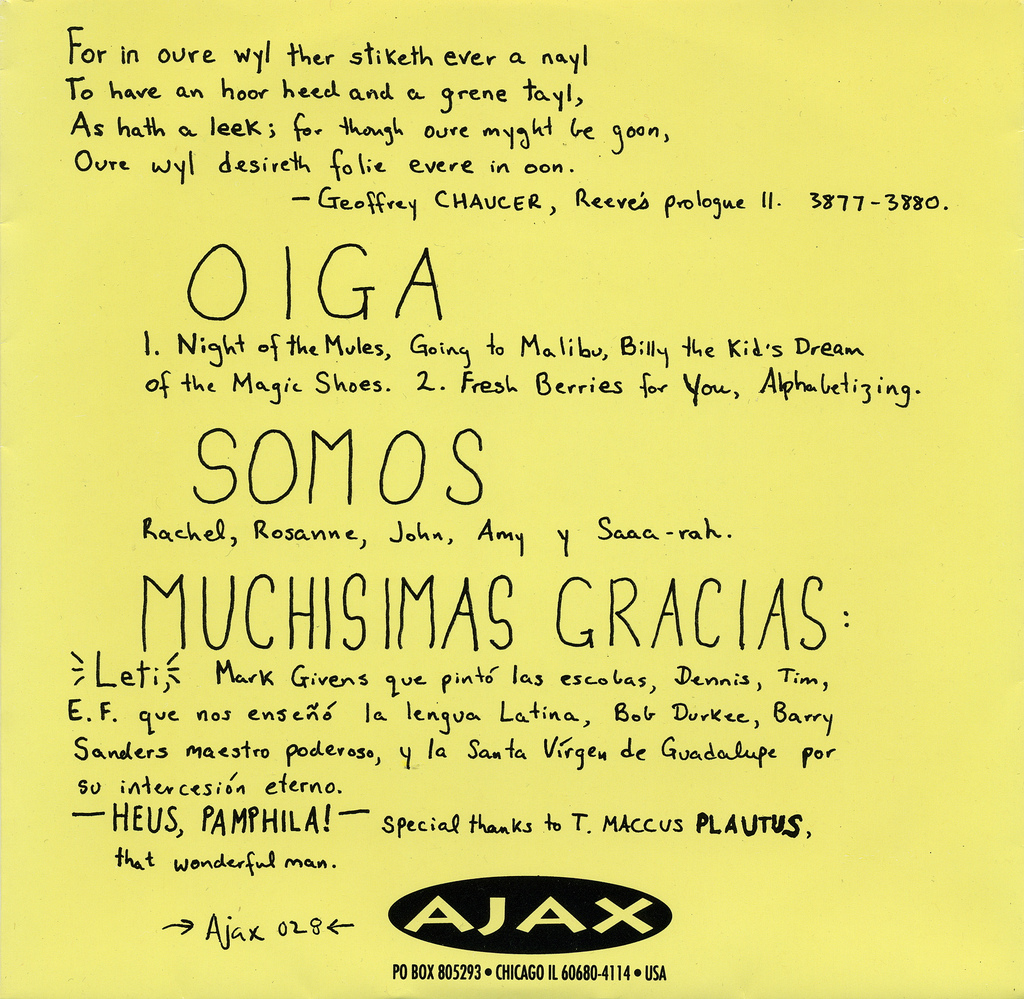 For in oure wyl ther stiketh ever a nayl
To have an hoor heed and a grene tayl,
As hath a leek; for though oure myght be goon,
Oure wyl desireth folie evere in oon.
— Geoffrey CHAUCER, Reeve's prologue ll. 3877-3880.
OIGA
1. Night of the Mules, Going to Malibu, Billy the Kid's Dream
of the Magic Shoes. 2. Fresh Berries for You, Alphabetizing.
SOMOS
Rachel, Rosanne, John, Amy y Saaa-rah.
MUCHISIMAS GRACIAS:
Leti, Mark Givens que pintó las escobas, Dennis, Tim,
E.F. que nos enseñó la lengua Latina, Bob Durkee, Barry
Sanders maestro poderoso, y la Santa Vírgen de Guadalupe por
su intercesión eterno.
— HEUS, PAMPHILA! — special thanks to T. MACCUS PLAUTUS,
that wonderful man.
→ Ajax 028 ←
AJAX
PO BOX 805293 • CHICAGO IL 60680-4114 • USA